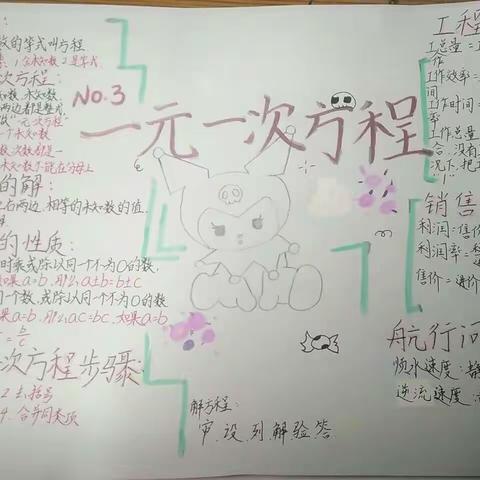 No.3
一元一次方程
数的等式叫方程
次方程:
知数,未知数
两边都是整式
一元一次方程
一个未知数
数,次数都是一
未知数不能在分母上
的解:
左右两边相等的未知数的值
的性质:
时乘或除以同一个不为0的数
如果a=b,那么a±b=b±c
同一个数,或除以同一个不为0的数
果a=b,那么ac=bc,如果a=b
=b/c
次方程步骤:
2去括号
4.合并同类项
解方程:
审、设、列、解、验、答
工程
工总量=
工作效率=
工作时间=
工作总量
合,没有
况下,把
"1"
销售
利润=售价
利润率=
售价=进价
航行问
顺水速度:静
逆流速度: